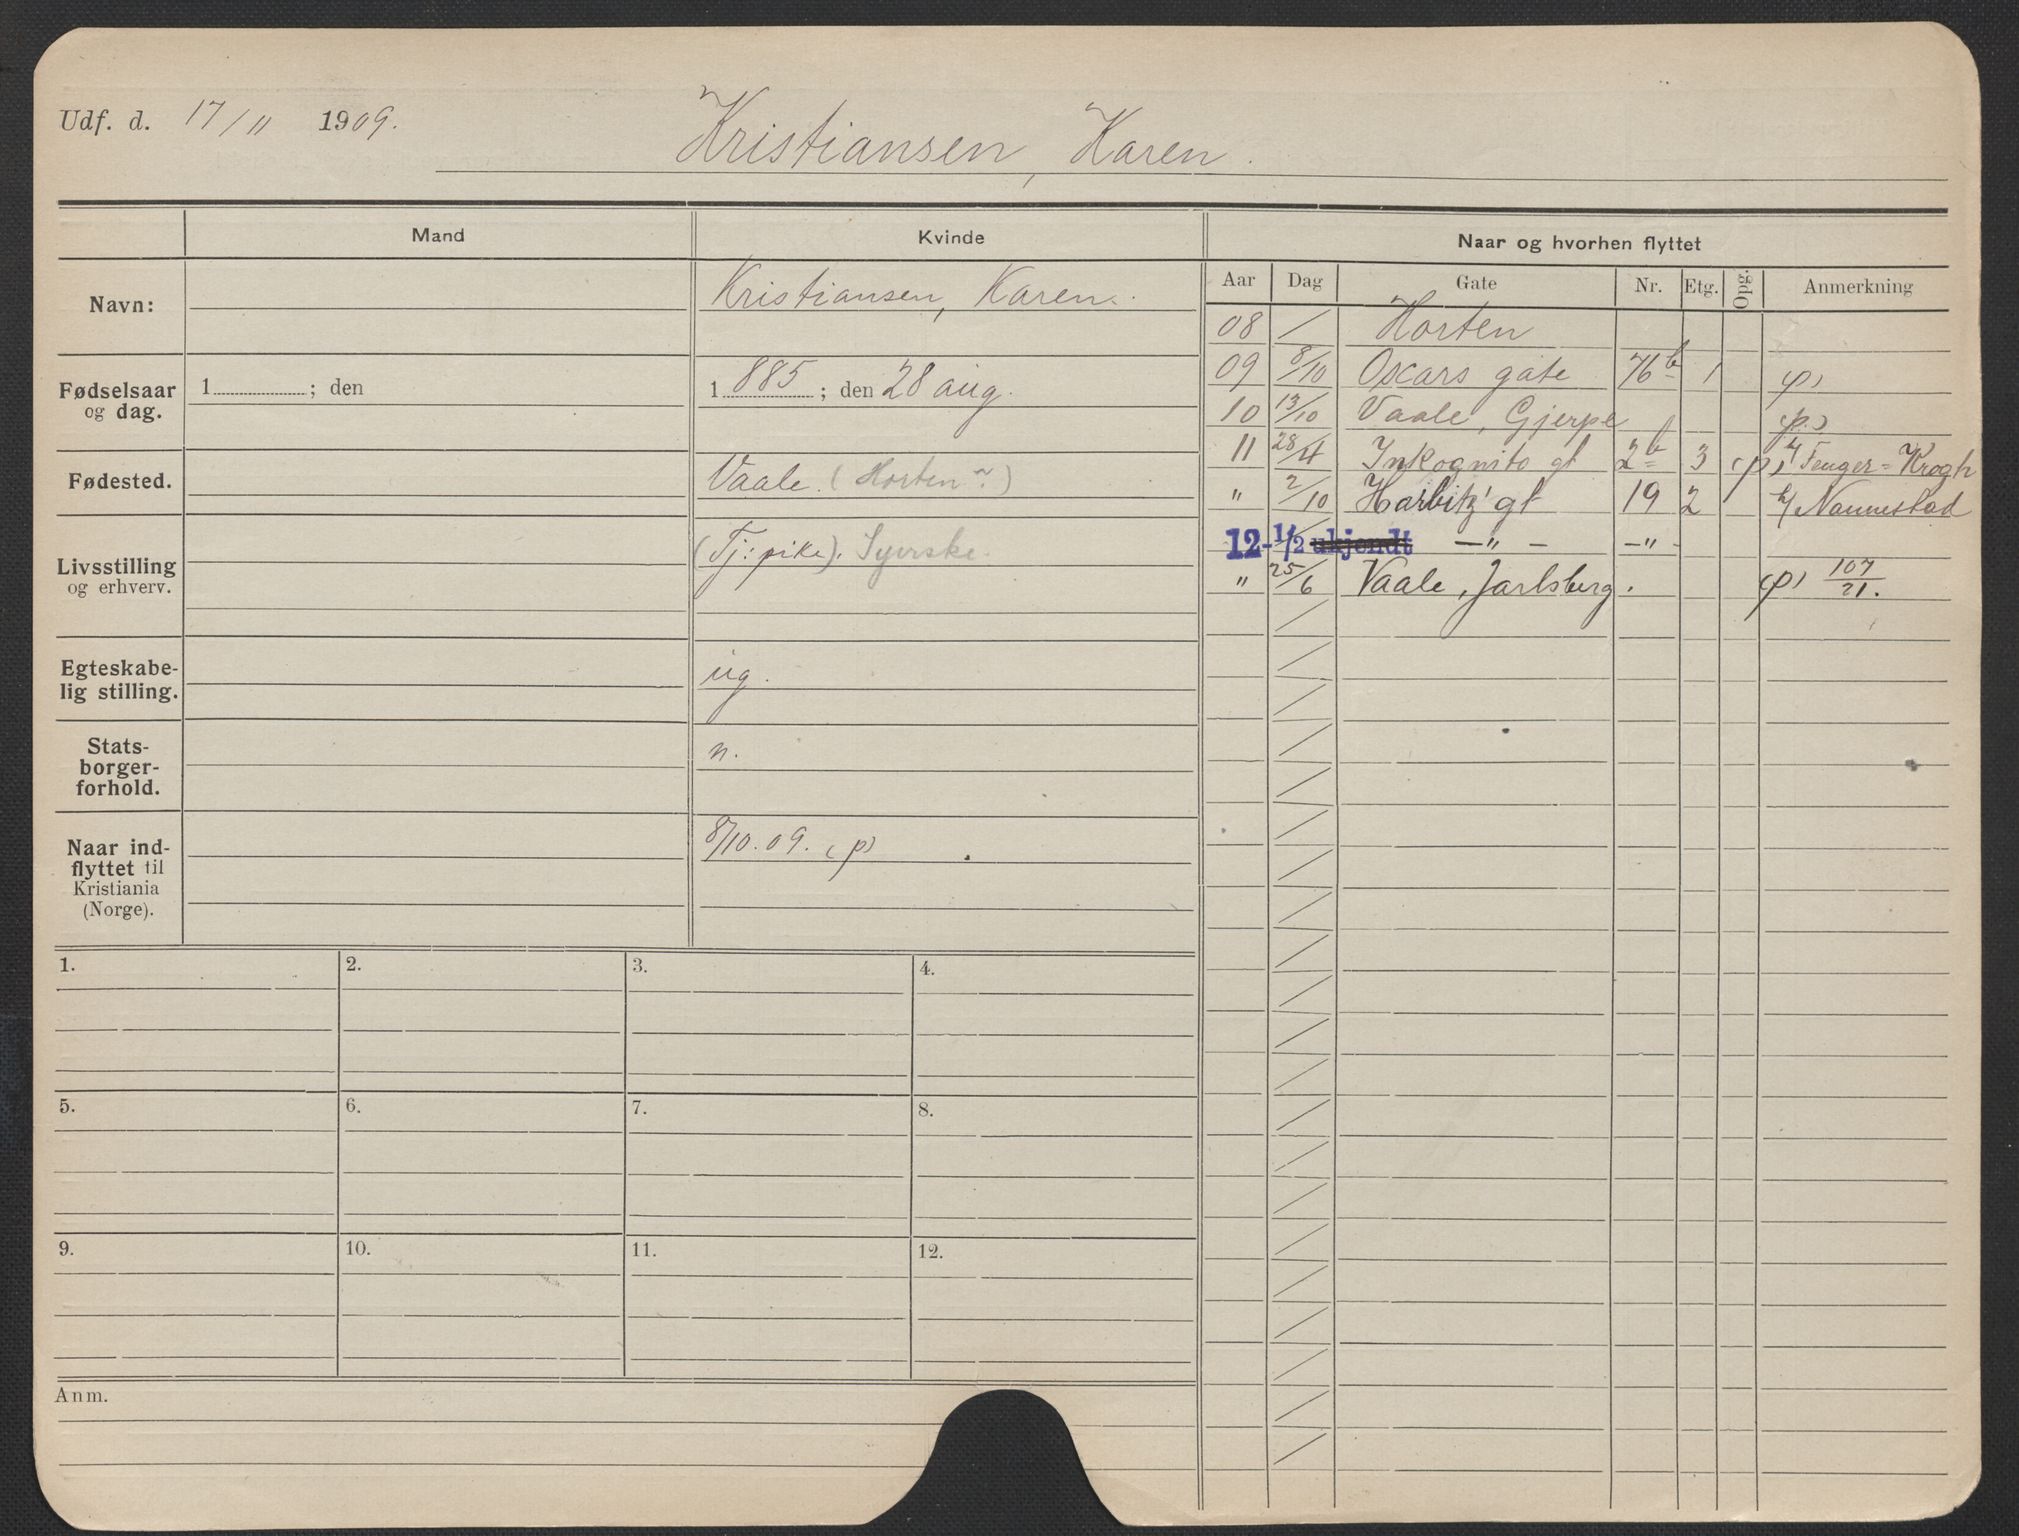 Udf. d. 17/11 1909.
Kristiansen, Karen.
Mand Kvinde Naar og hvorhen flyttet
Aar Dag Gate Nr. Etg. Opg. Anmerkning
Navn: Kristiansen, Karen.
Fødselsaar og dag. 1 ; den 1885 ; den 28 aug.
Fødested. Vaale (Horten ~)
Livsstilling og erhverv. (Tj: pike). Syerske.
Egteskabe-
lig stilling. ug.
Stats-
borger-
forhold. n.
Naar ind-
flyttet til
Kristiania
(Norge). 8/10.09. (p)
08 / Horten
09 8/10 Oscars gate 76b 1 (p)
10 13/10 Vaale, Gjerpe (p.)
11 28/4 Inkognito gt 2b 3 (p) h/ Fenger=Krogh
" 2/10 Harbitz' gt 19 2 h/ Nannestad
12 1/2 ukjendt —"— —"—
" 25/6 Vaale, Jarlsberg. (p) 107/21.
1. 2. 3. 4.
5. 6. 7. 8.
9. 10. 11. 12.
Anm.